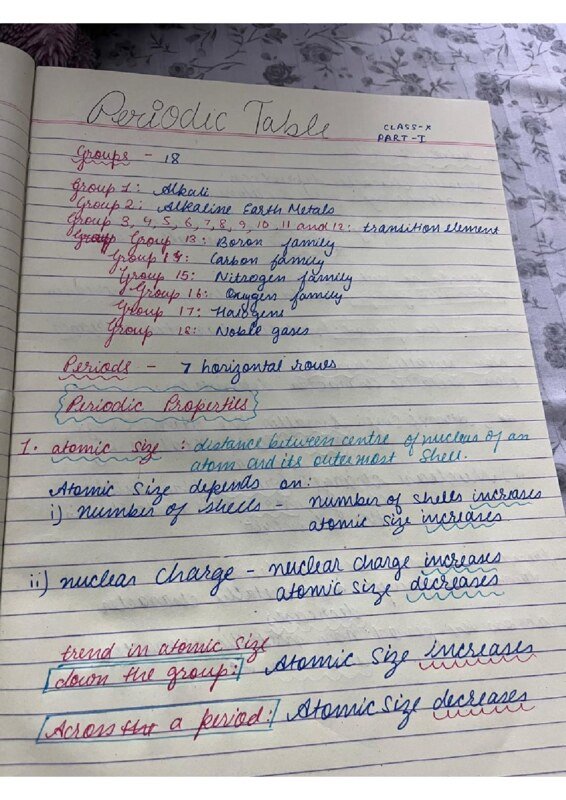 Periodic Table
CLASS-X
PART-I
Groups - 18
Group 1: Alkali
Group 2: Alkaline Earth Metals
Group 3, 4, 5, 6, 7, 8, 9, 10, 11 and 12: transition element
Group 13: Boron family
Group 14: Carbon family
Group 15: Nitrogen family
Group 16: Oxygen family
Group 17: Halogens
Group 18: Noble gases
Periods - 7 horizontal rows
Periodic Properties
1. atomic size : distance between centre of nucleus of an
atom and its outermost shell.
Atomic size depends on:
i) number of shells - number of shells increases
atomic size increases
ii) nuclear charge - nuclear charge increases
atomic size decreases
trend in atomic size
down the group: Atomic size increases
Across the a period: Atomic size decreases